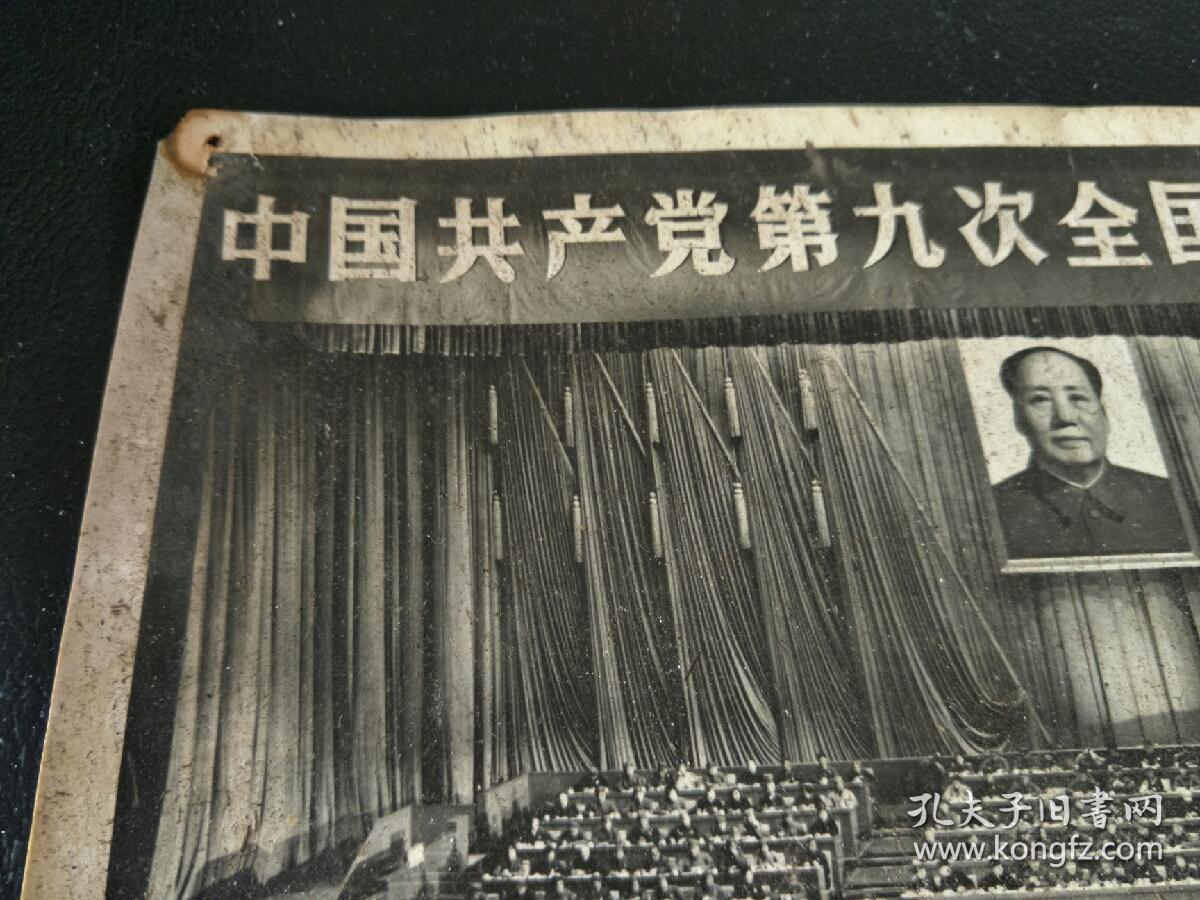 中国共产党第九次全国
孔夫子旧書网
www.kongfz.com